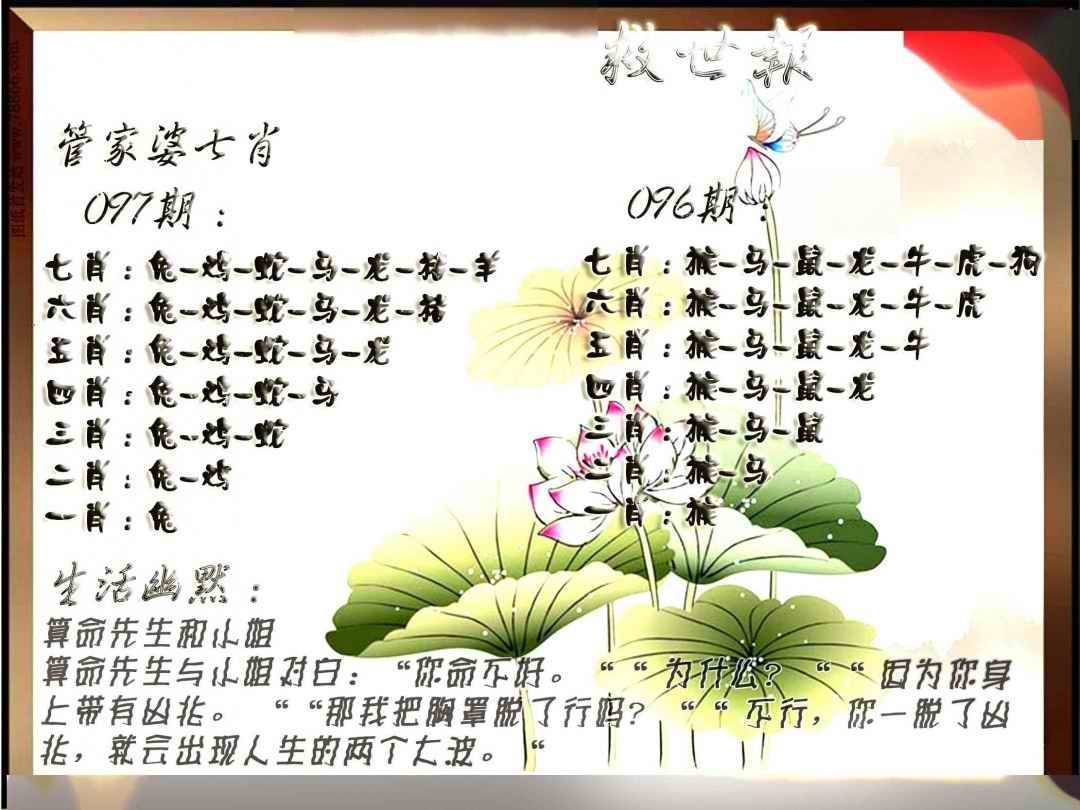 救世報
管家婆七肖
097期：
七肖：兔-鸡-蛇-马-龙-猪-羊
六肖：兔-鸡-蛇-马-龙-猪
五肖：兔-鸡-蛇-马-龙
四肖：兔-鸡-蛇-马
三肖：兔-鸡-蛇
二肖：兔-鸡
一肖：兔
096期：
七肖：猴-马-鼠-龙-牛-虎-狗
六肖：猴-马-鼠-龙-牛-虎
五肖：猴-马-鼠-龙-牛
四肖：猴-马-鼠-龙
三肖：猴-马-鼠
二肖：猴-马
一肖：猴
生活幽默：
算命先生和小姐
算命先生与小姐对白：“你命不好。““为什么？““因为你身
上带有凶兆。 ““那我把胸罩脱了行吗？““不行，你一脱了凶
兆，就会出现人生的两个大波。“